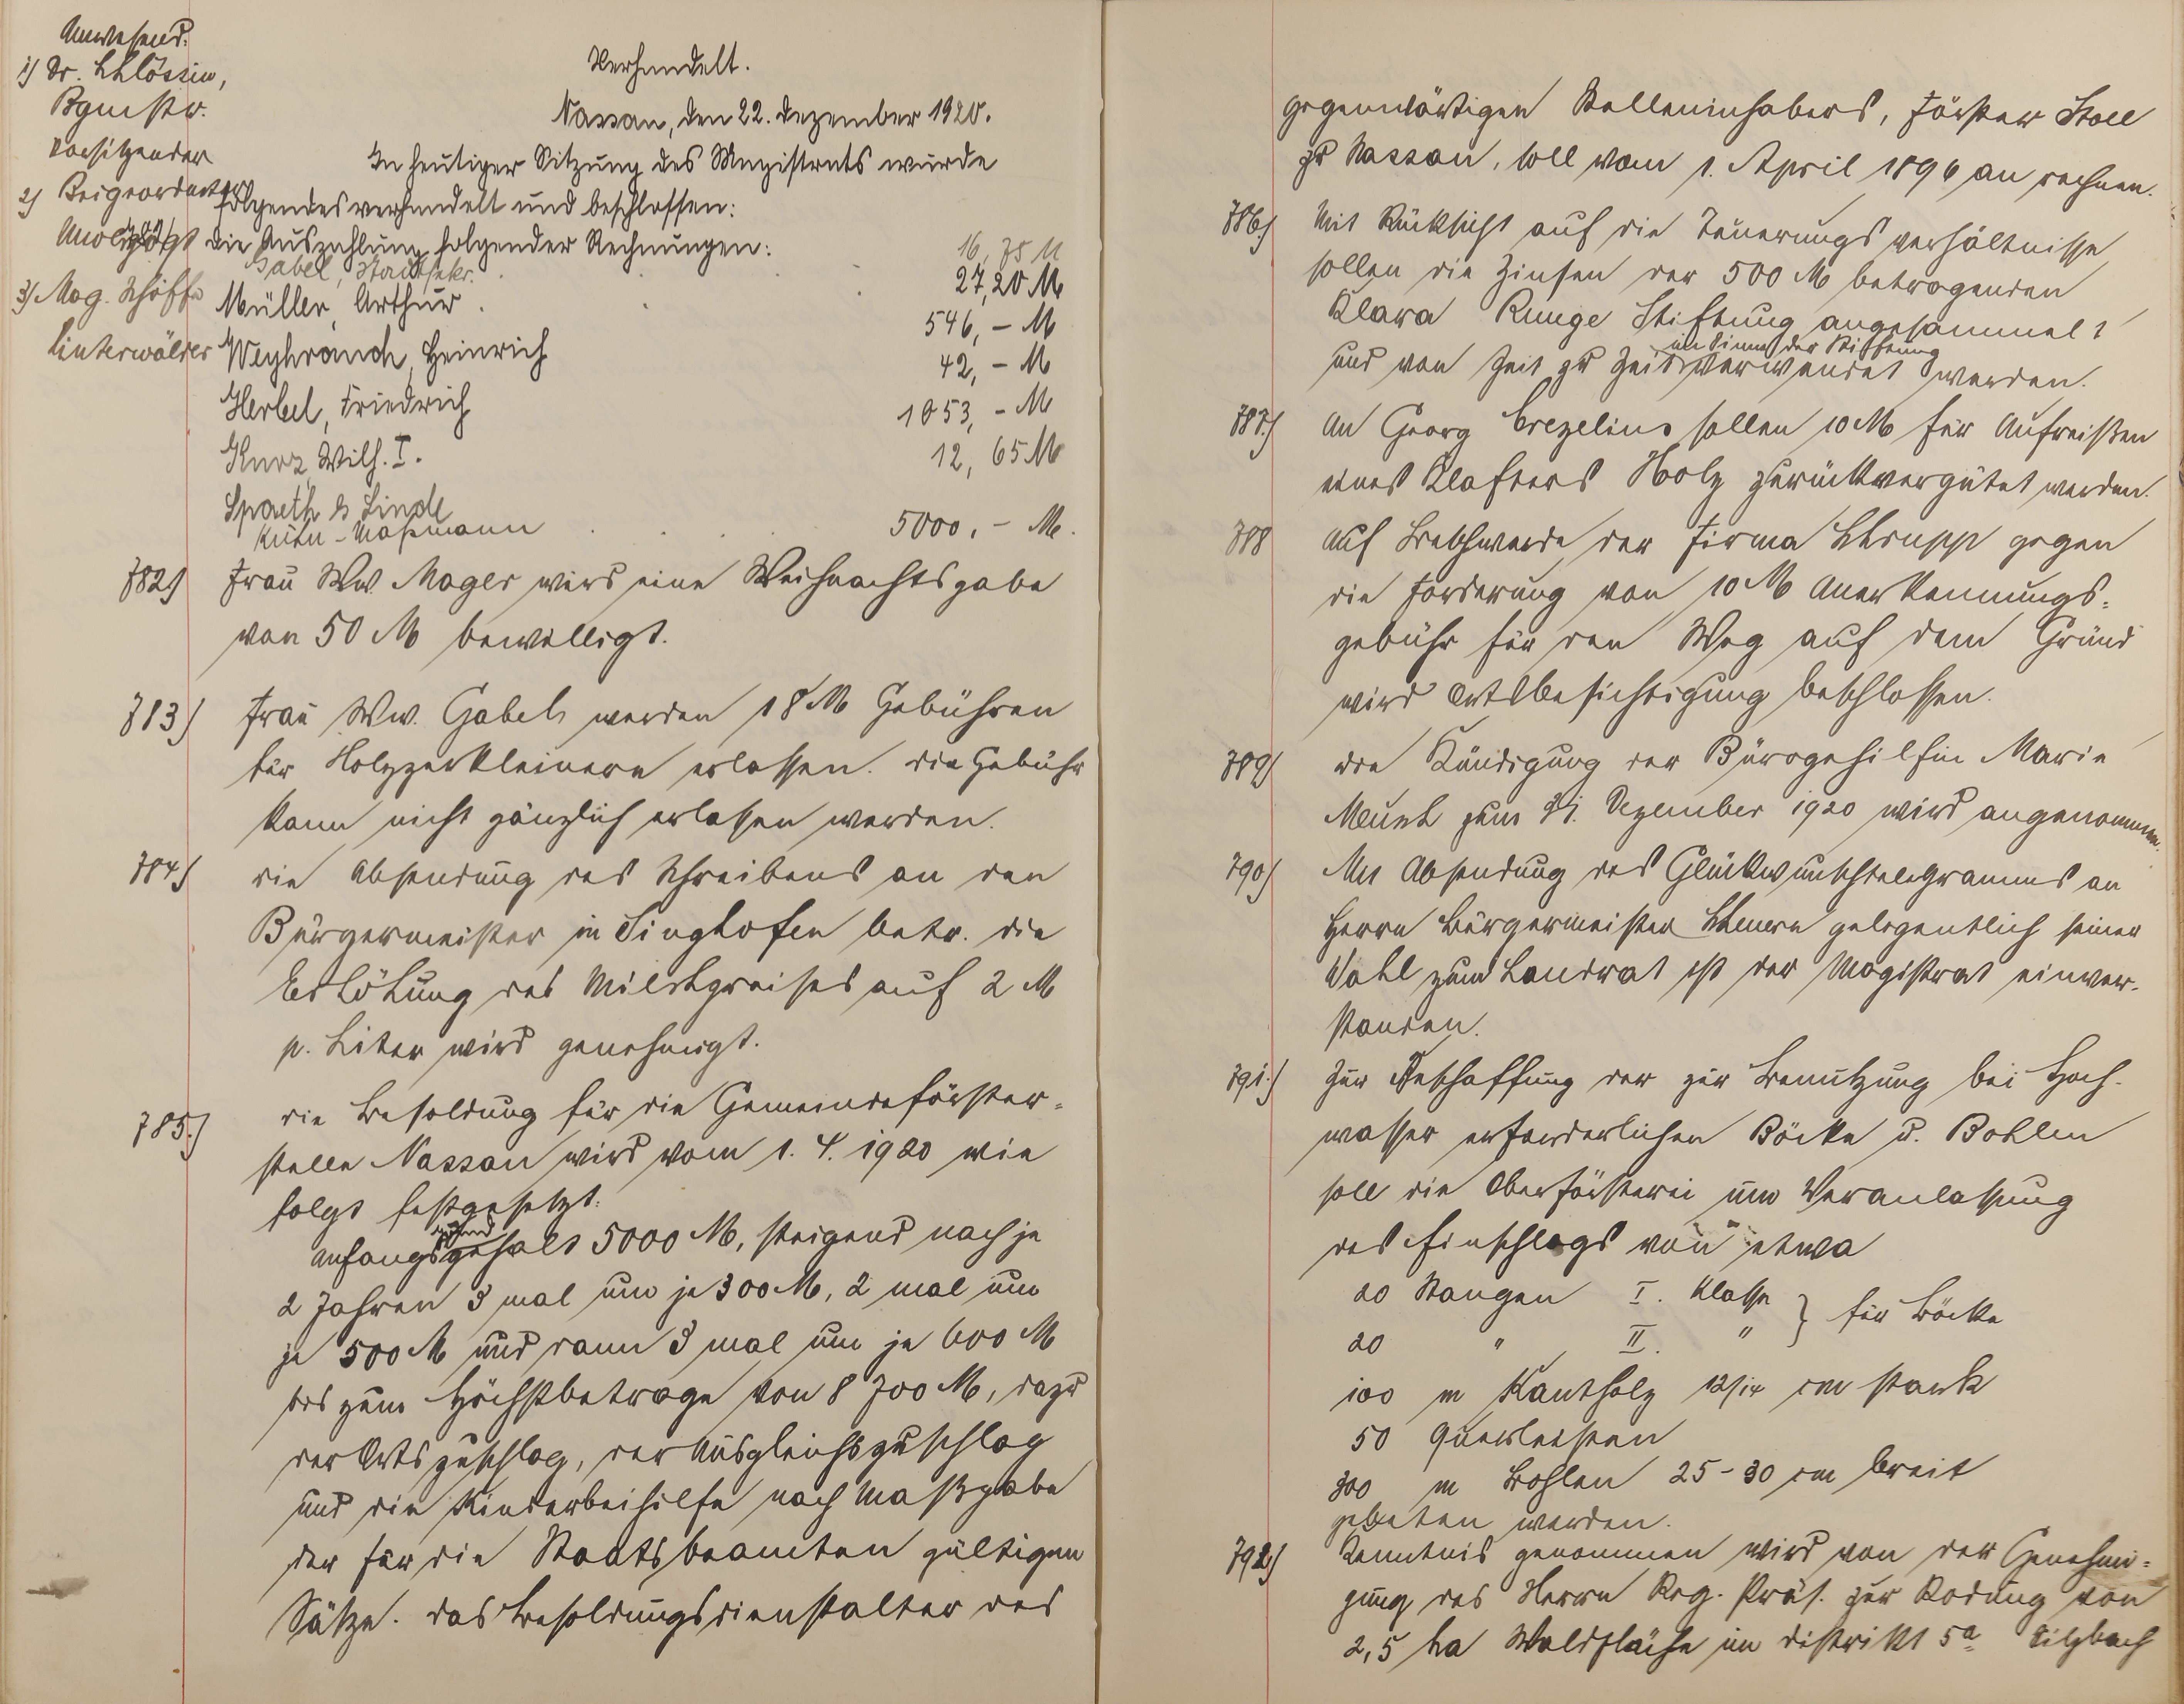 Anwesend:
1) Dr. Schlössin,
Bgmstr.
Vorsitzender
2) Beigeordneter
3) Mag. Schöffe
Hinterwälder
Verhandelt.
Nassau, den 22. Dezember 1920.
In heutiger Sitzung des Magistrats wurde
folgendes verhandelt und beschlossen:
die Auszahlung folgender Rechnungen:
Gabel, Stadtsekr. 16,75 M
Müller, Arthur . 27,20 M
Weyhrauch, Heinrich 546,- M
Herbel, Friedrich 42,- M
Knorz, Wilh. I. 1053,- M
Spaeth & Linde 12,65 M
Kühn-Maßmann 5000,- M.
782) Frau Ww. Mager wird eine Weihnachtsgabe
von 50 M bewilligt.
783) Frau Ww. Gabel werden 18 M Gebühren
für Holzzerkleinern erlassen. die Gebühr
kann nicht gänzlich erlassen werden.
784) die Absendung des Schreibens an den
Bürgermeister in Singhofen betr. die
Erhöhung des Milchpreises auf 2 M
p. Liter wird genehmigt.
785.) die Besoldung für die Gemeindeförster-
stelle Nassau wird vom 1. 4. 1920 wie
folgt festgesetzt:
Anfangsgrundgehalt 5000 M, steigend nach je
2 Jahren 3 mal um je 300 M, 2 mal um
je 500 M und dann 3 mal um je 600 M
bis zum Höchstbetrage von 8700 M, dazu
der Ortszuschlag, der Ausgleichszuschlag
und die Kinderbeihilfe nach Maßgabe
der für die Staatsbeamten gültigen
Sätze. das Besoldungsdienstalter des
gegenwärtigen Stelleninhabers, Förster Stoll
zu Nassau, soll vom 1. April 1896 an rechnen.
786) Mit Rücksicht auf die Teuerungsverhältnisse
sollen die Zinsen der 500 M betragenden
Klara Runge Stiftung angesammelt
und von Zeit zu Zeit im Sinne der Stiftung verwendet werden.
787.) An Georg Crezelius sollen 10 M für Aufreißen
eines Klafters Holz zurückvergütet werden.
788 Auf Beschwerde der Firma Schrupp gegen
die Forderung von 10 M Anerkennungs-
gebühr für den Weg auf dem Gründ
wird Ortsbesichtigung beschlossen.
789) die Kündigung der Bürogehilfin Marie
zum 31. Dezember 1920 wird angenommen.
790) Mit Absendung des Glückwunschtelegramms an
Herrn Bürgermeister gelegentlich seiner
Wahl zum Landrat ist der Magistrat einver-
standen.
791.) Zur Beschaffung der zur Benutzung bei Hoch-
wasser erforderlichen Böcke u. Bohlen
soll die Oberförsterei um Veranlassung
des Einschlags von etwa
20 Stangen I. Klasse } für Böcke
20 " II. "
100 m Kantholz 12/14 cm stark
50 Querleisten
300 m Bohlen 25-30 cm breit
gebeten werden.
792) Kenntnis genommen wird von der Genehmi-
gung des Herrn Reg. Präs. zur Rodung von
2,5 ha Waldfläche im Distrikt 5a